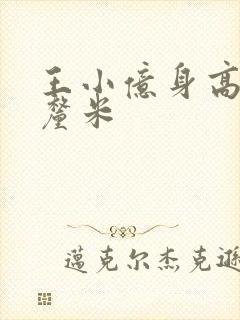 王小億身高
釐米
邁克尔杰克遜